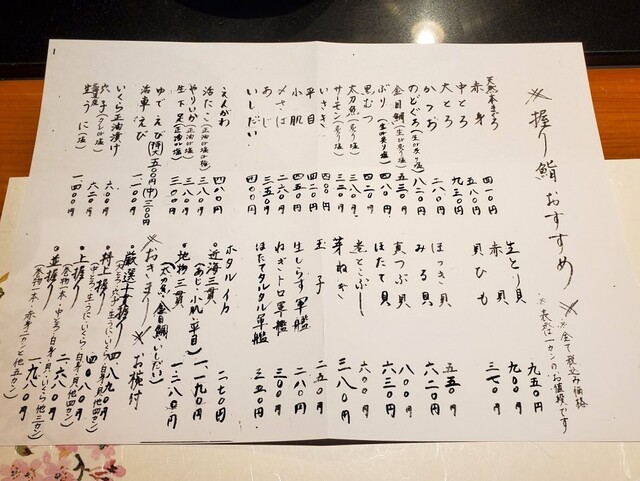 ※握り鮨おすすめ
※全て税込み価格
※表示は一カンのお値段です
天然本まぐろ
赤身 四一〇円
中とろ 五八〇円
大とろ 九三〇円
かつお 二八〇円
のどぐろ(生or炙り塩) 八二〇円
金目鯛(生or炙り塩) 五三〇円
ぶり(生or炙り塩) 四八〇円
黒むつ 四二〇円
太刀魚(炙り塩)
サーモン(炙り塩) 三二〇円
いさき 四〇〇円
平目 四二〇円
小肌
〆さば 二六〇円
あじ 三五〇円
いしだい 四〇〇円
えんがわ 四八〇円
活たこ(正油or塩or梅) 三八〇円
やりいか(正油or塩)
生下足(正油or塩) 三〇〇円
ゆでえび(特大)五〇〇円(中)三〇〇円
活車えび 一、二〇〇円
いくら正油漬け 六〇〇円
穴子(ツメor塩) 六二〇円
生うに(塩) 一、四〇〇円
生とり貝 九五〇円
赤貝 九〇〇円
貝ひも 三七〇円
ほっき貝 五五〇円
みる貝 六二〇円
真つぶ貝 八〇〇円
ほたて貝 六三〇円
煮とこぶし 六〇〇円
芽ねぎ 三八〇円
玉子 二五〇円
生しらす軍艦 二八〇円
ねぎトロ軍艦 三〇〇円
ほたてタルタル軍艦 三五〇円
ホタルイカ 二七〇円
・近海三貫(あじ・小肌・平目) 一、一九〇円
・地物三貫(太刀魚・金目鯛・いしだい) 一、二八〇円
※おきまり※ お椀付
・厳選上握り 四、八九〇円
・特上握り(中とろ・生うに・いくら・白身・貝・他四カン) 四、〇八〇円
・上握り(巻物一本・中とろ・いくら・白身・貝・他四カン) 二、六八〇円
・並握り(巻物一本・赤身一カンと他五カン) 一、九八〇円